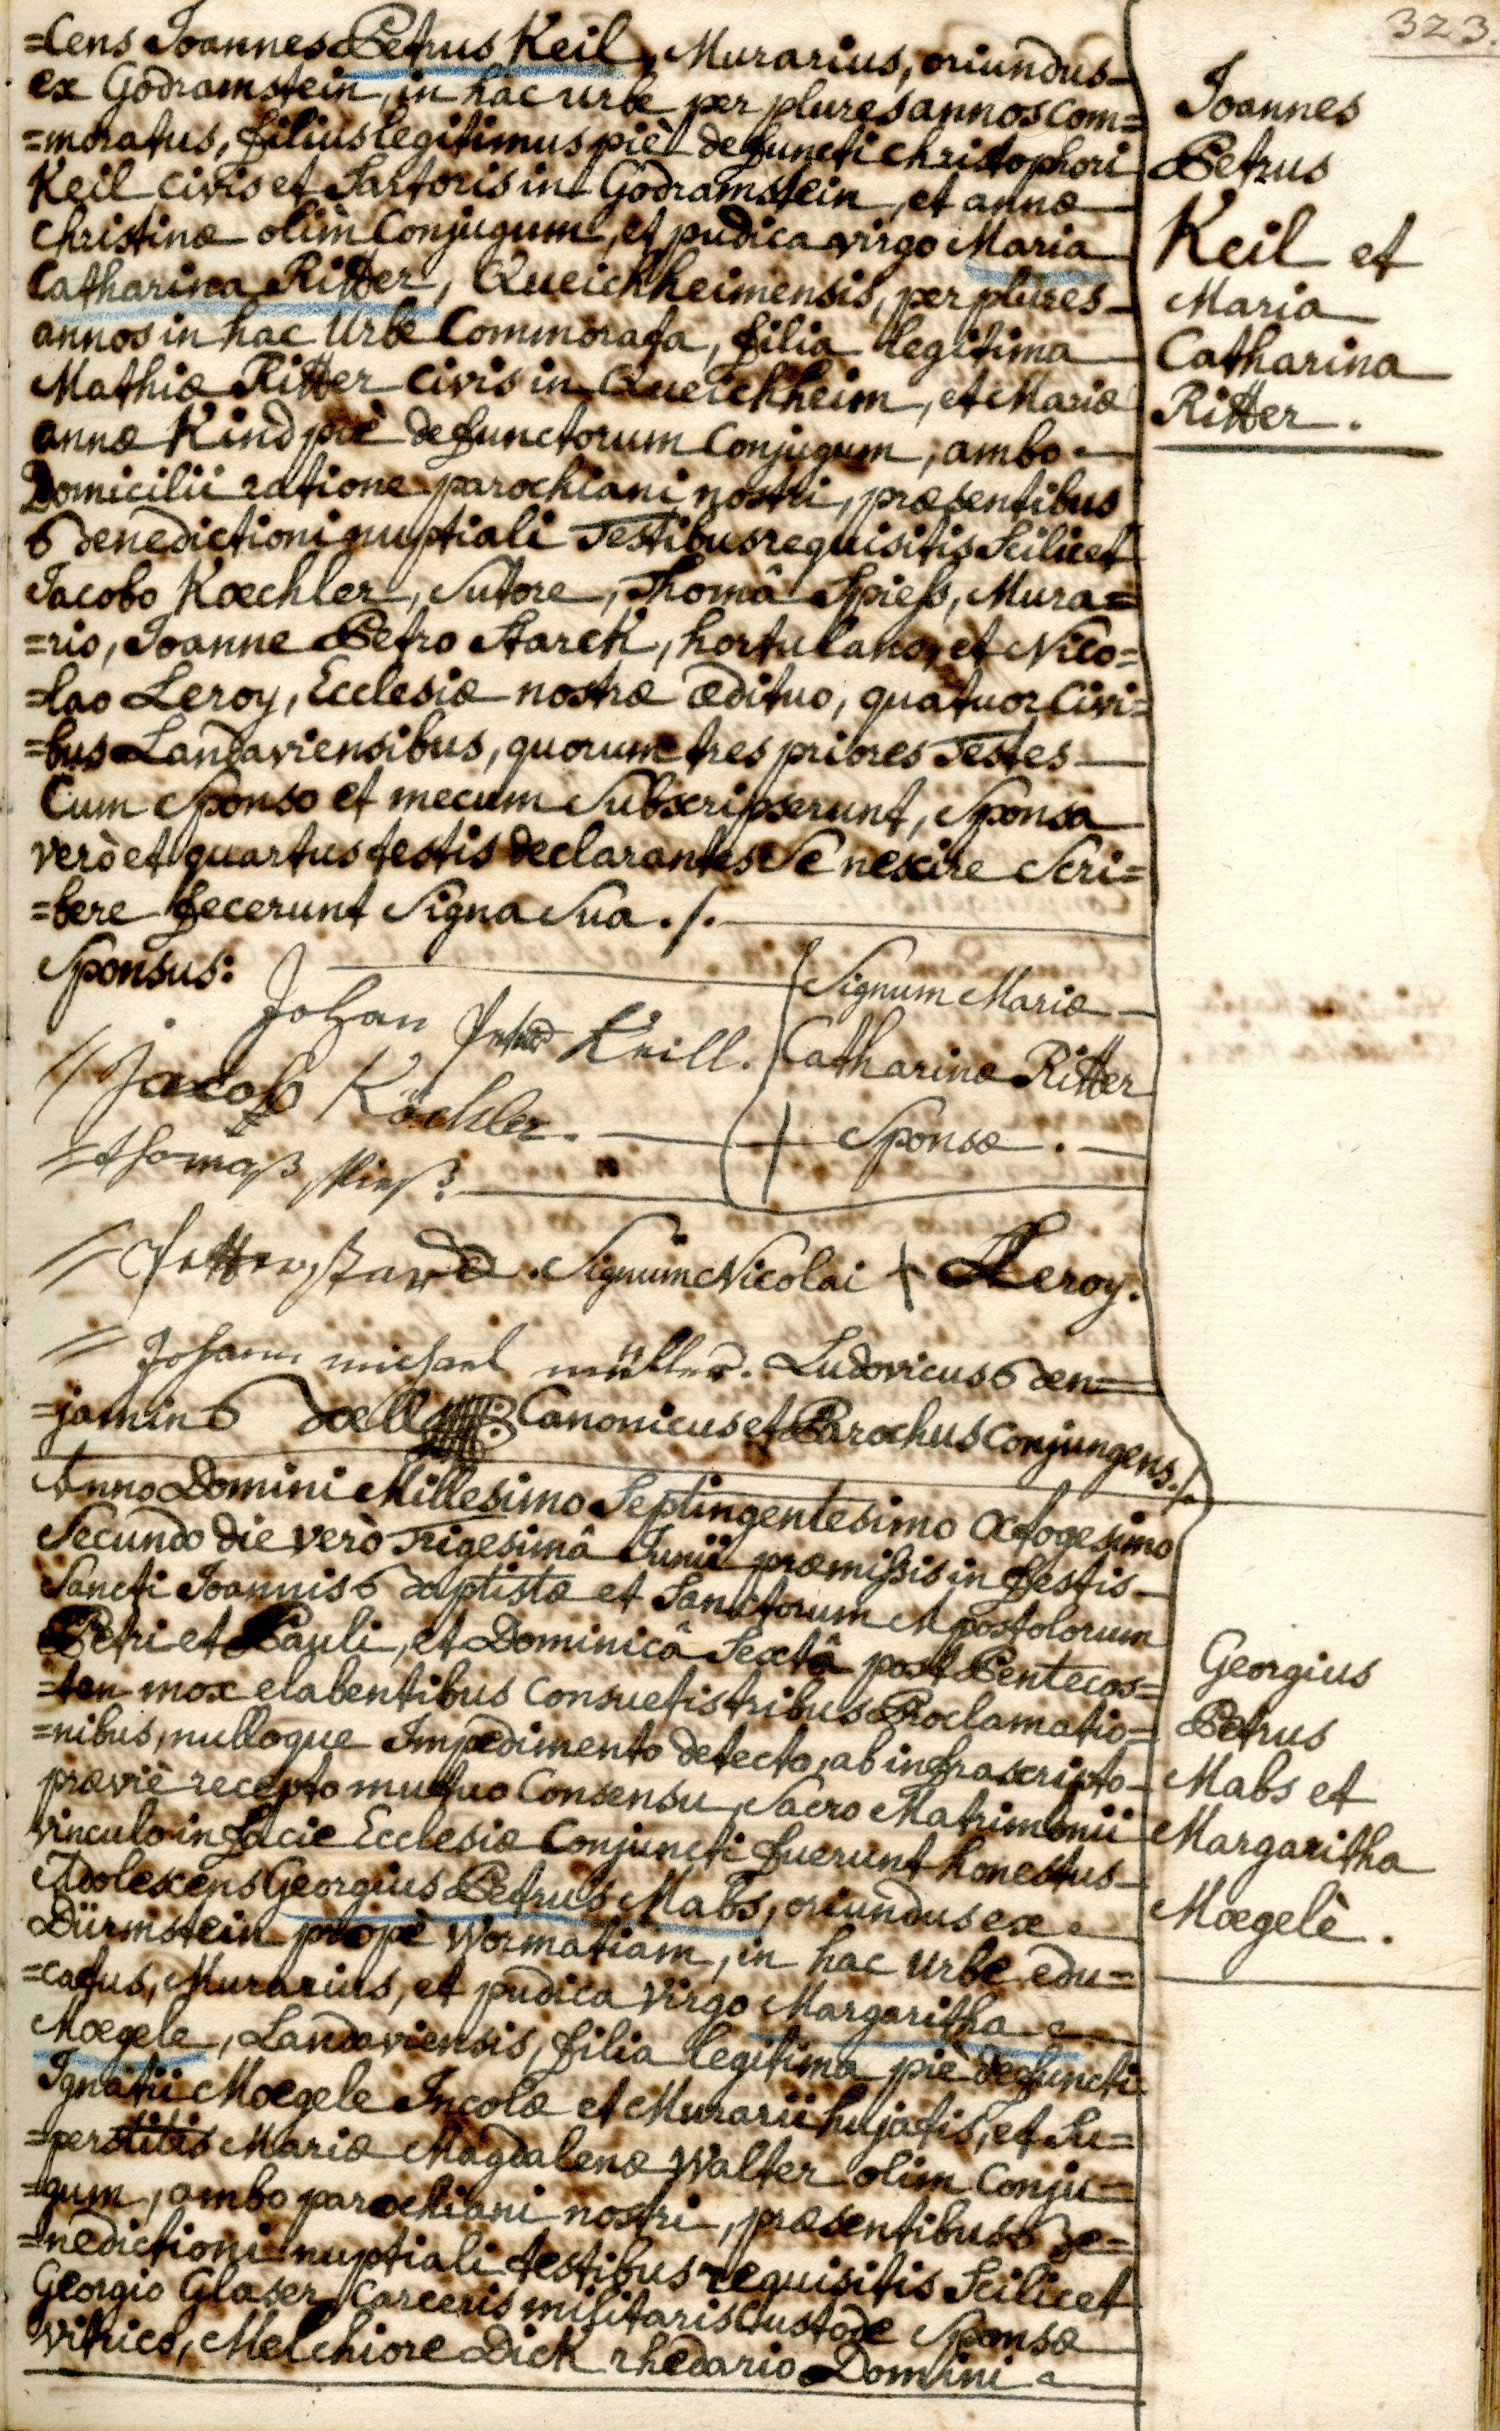 323.
=Cens Joannes Petrus Keil, Murarius, oriundus=
ex Godramstein, in hac urbe per plures annos com=
=moratus, filius legitimus piè defuncti Christophori
Keil Civis et Sartoris in Godramstein, et annæ
Christinæ olim Conjugum, et pudica virgo Maria
Catharina Ritter, Queichheimensis, per plures
annos in hac Urbe Commorata, filia legitima
Mathiæ Ritter Civis in Queichheim, et Mariæ
annæ Kind piè defunctorum Conjugum, ambo
Domicilii ratione parochiani nostri, præsentibus
Benedictioni nuptiali Testibus requisitis Scilicet
Jacobo Kœchler, Sutore, Thomâ Spieß, Mura=
=rio, Joanne Petro Starck, hortulano, et Nico=
=lao Leroy, Ecclesiæ nostræ ædituo, quatuor Civi=
=bus Landaviensibus, quorum tres priores Testes
Cum Sponso et mecum Subscripserunt, Sponsa
verò et quartus testis declarantes Se nescire Scri=
=bere fecerunt Signa Sua ./.
Joannes
Petrus
Keil et
Maria
Catharina
Ritter.
Sponsus:
Johan Keill.
Jacob Köchler.
thomaß Spieß
Signum Mariæ
Catharinæ Ritter
+ Sponsæ.
Signum Nicolai + Leroy.
Johann michael müller. Ludovicus Ben=
=jamin Bœll Canonicus et Parochus Conjungens ./.
Anno Domini Millesimo Septingentesimo Octogesimo
Secundo die verò Trigesimâ Junii præmissis in festis
Sancti Joannis Baptistæ et Sanctorum Apostolorum
Petri et Pauli, et Dominicâ Sextâ post Pentecos=
=ten mox elabentibus Consuetis tribus Proclamatio=
=nibus, nulloque Impedimento detecto, ab infrascripto
præviè recepto mutuo Consensu, Sacro Matrimonii
vinculo in facie Ecclesiæ Conjuncti fuerunt honestus
Adolescens Georgius Petrus Mabs, oriundus ex
Dürmstein propè Wormatiam, in hac Urbe edu=
=catus, Murarius, et pudica Virgo Margaritha
Mœgele, Landaviensis, filia legitima piè defuncti
Ignatii Mœgele Incolæ et Murarii hujatis, et Su=
=perstitis Mariæ Magdalenæ Walter olim Conju=
=gum, ambo parochiani nostri, præsentibus Be=
=nedictioni nuptiali testibus requisitis Scilicet
Georgio Glaser Carceris militaris Custode Sponsæ
Vitrico, Melchiore Dick rhedario Domini
Georgius
Petrus
Mabs et
Margaritha
Mœgelè.